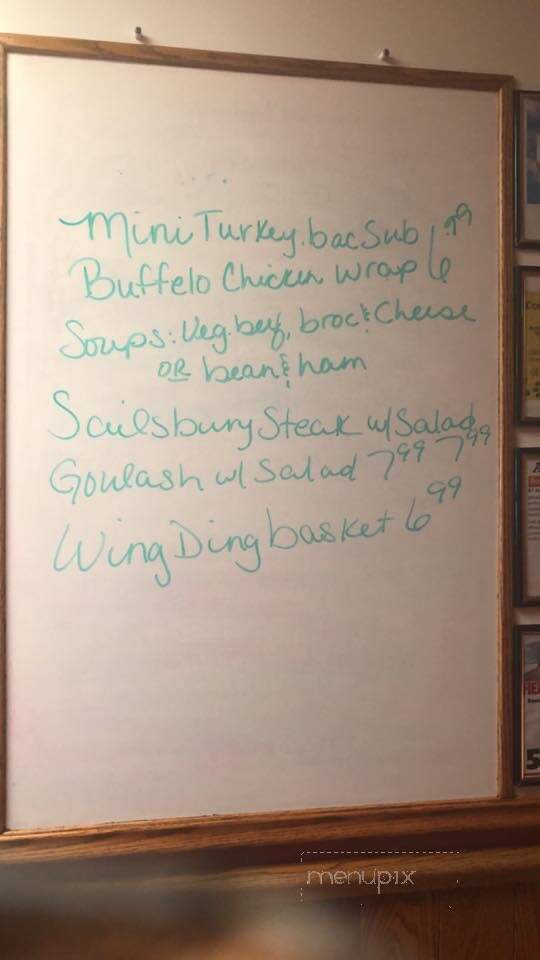 Mini Turkey.bac Sub
Buffelo Chicken Wrap 6.99
Soups: Veg.beef, broc & Cheese
OR bean & ham
Sailsbury Steak w/ Salad 7.99
Goulash w/ Salad 7.99
Wing Ding basket 6.99
menupix